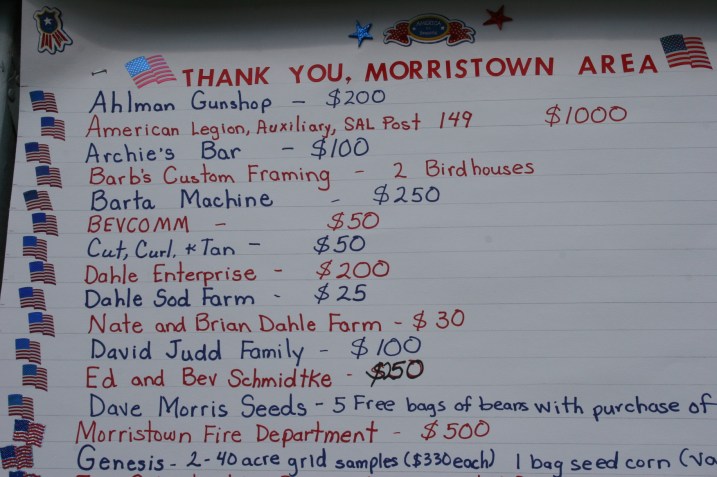 AMERICA
THANK YOU, MORRISTOWN AREA
Ahlman Gunshop - $200
American Legion, Auxiliary, SAL Post 149 $1000
Archie's Bar - $100
Barb's Custom Framing - 2 Birdhouses
Barta Machine - $250
BEVCOMM - $50
Cut, Curl. & Tan - $50
Dahle Enterprise - $200
Dahle Sod Farm - $25
Nate and Brian Dahle Farm - $30
David Judd Family - $100
Ed and Bev Schmidtke - $250
Dave Morris Seeds - 5 Free bags of beans with purchase of
Morristown Fire Department - $500
Genesis - 2-40 acre grid samples ($330 each) 1 bag seed corn (Va